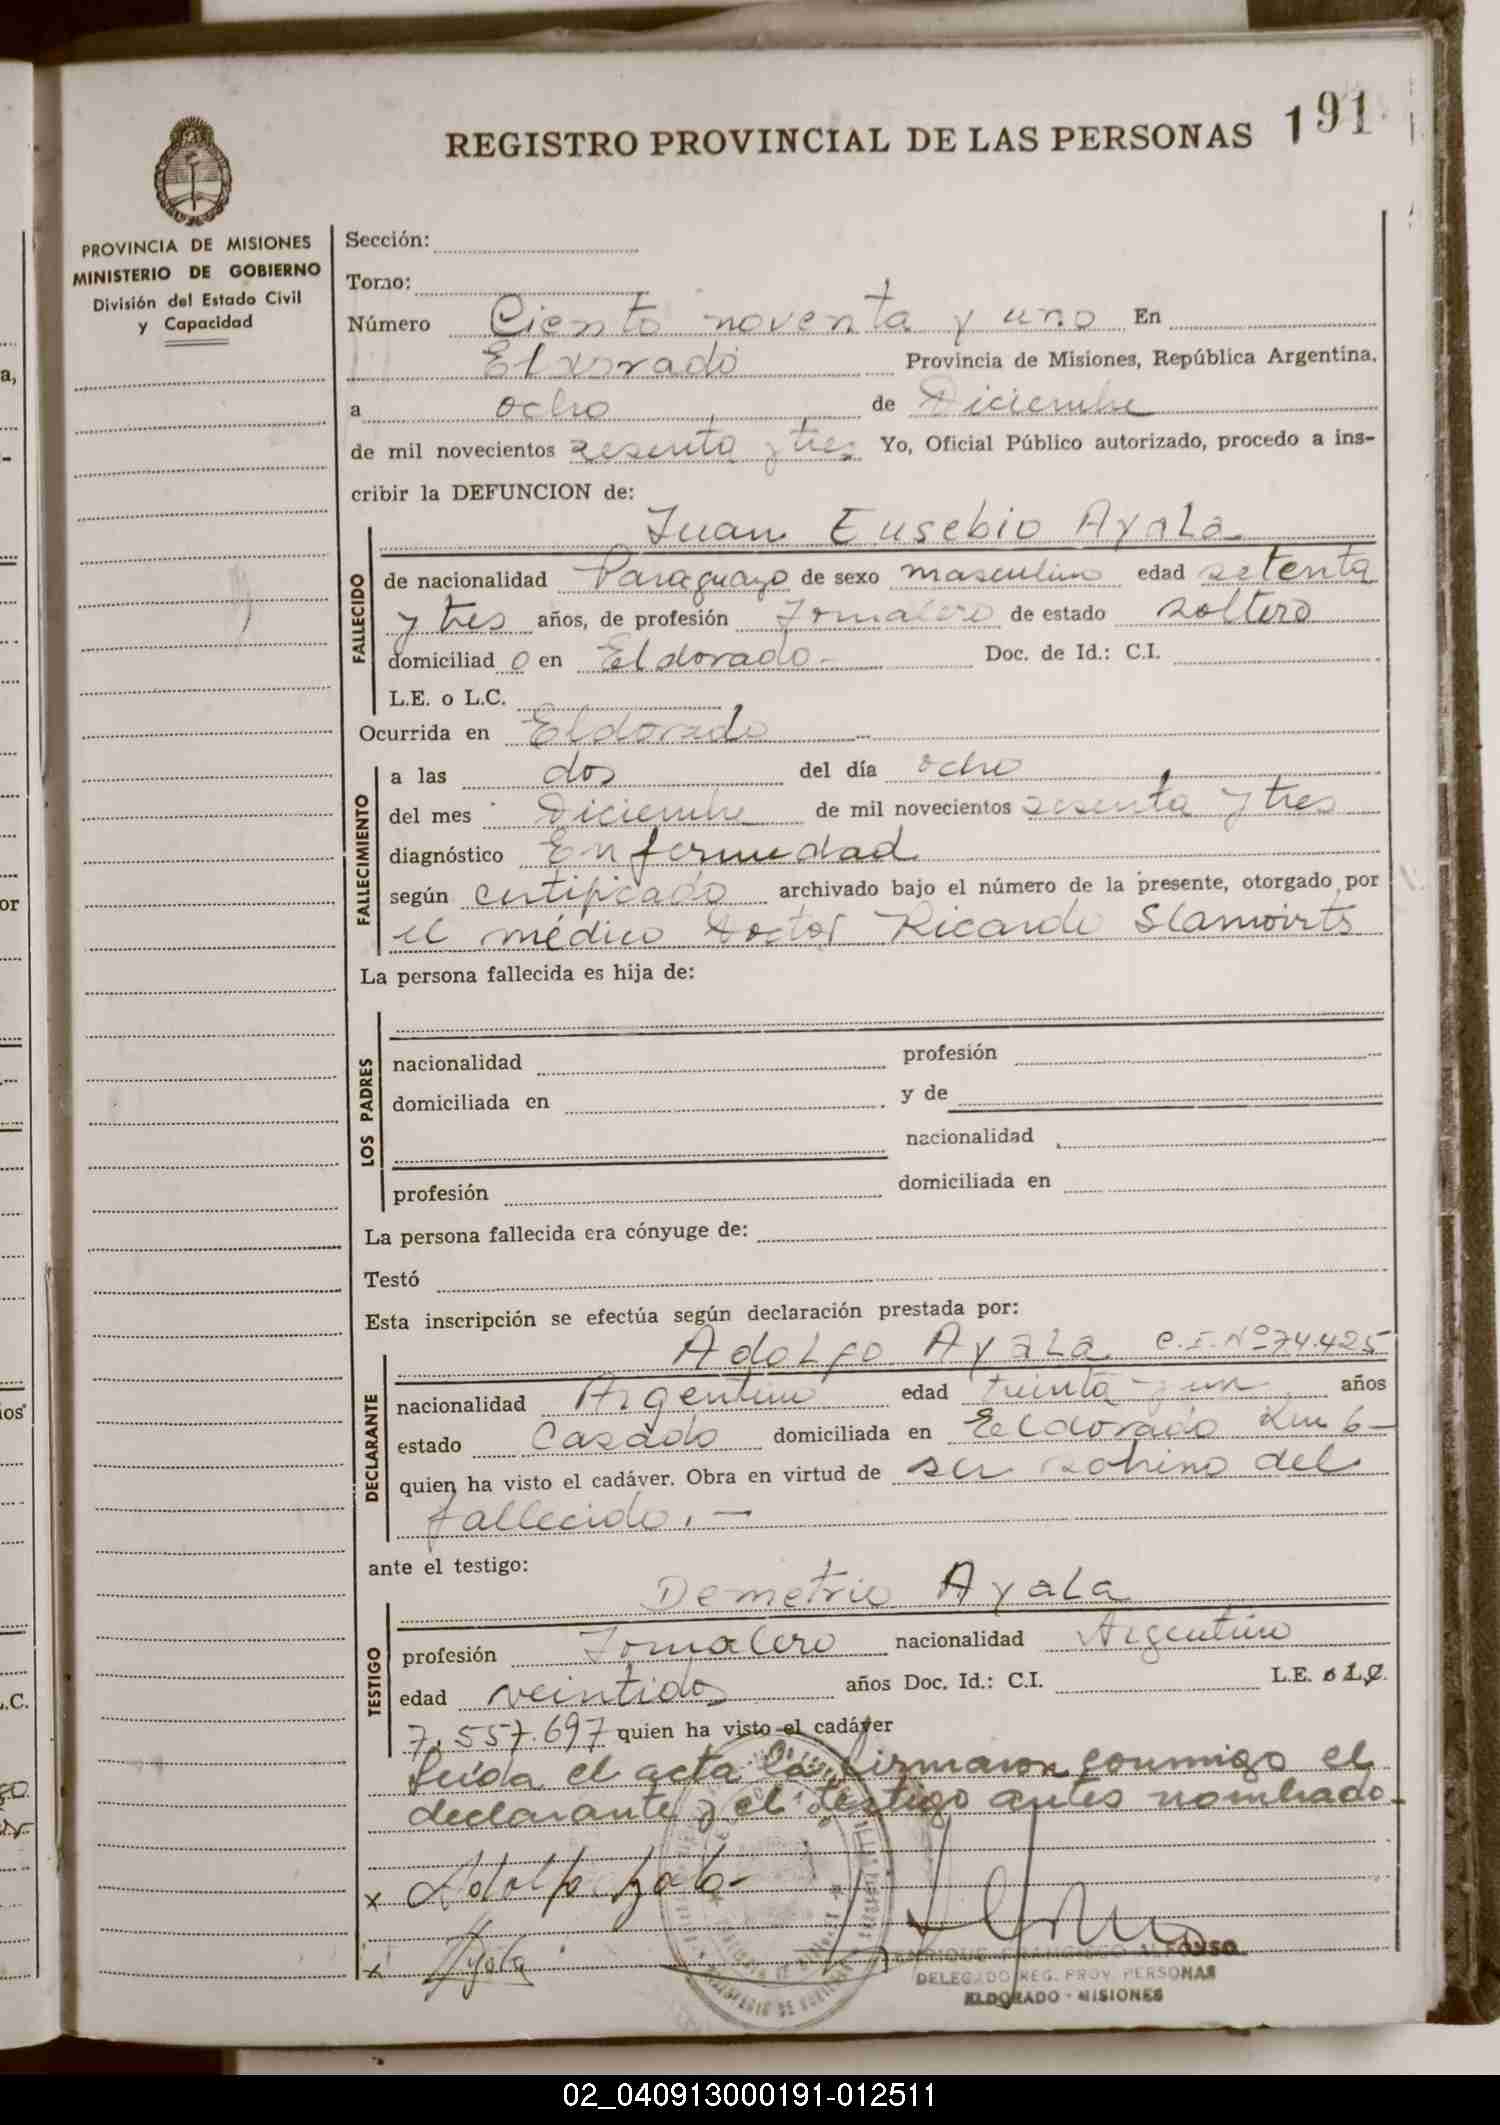 REGISTRO PROVINCIAL DE LAS PERSONAS 191
PROVINCIA DE MISIONES
MINISTERIO DE GOBIERNO
División del Estado Civil
y Capacidad
Sección:
Tomo:
Número Ciento noventa y uno En
Eldorado Provincia de Misiones, República Argentina,
a ocho de Diciembre
de mil novecientos sesenta y tres Yo, Oficial Público autorizado, procedo a ins-
cribir la DEFUNCION de:
Juan Eusebio Ayala
FALLECIDO
de nacionalidad Paraguayo de sexo masculino edad setenta
y tres años, de profesión Jornalero de estado soltero
domiciliad o en Eldorado.- Doc. de Id.: C.I.
L.E. o L.C.
Ocurrida en Eldorado
FALLECIMIENTO
a las dos del día ocho
del mes Diciembre de mil novecientos sesenta y tres
diagnóstico Enfermedad
según certificado archivado bajo el número de la presente, otorgado por
el médico Doctor Ricardo
La persona fallecida es hija de:
LOS PADRES
nacionalidad profesión
domiciliada en y de
nacionalidad
profesión domiciliada en
La persona fallecida era cónyuge de:
Testó
Esta inscripción se efectúa según declaración prestada por:
Adolfo Ayala C.I. Nº 74.425
DECLARANTE
nacionalidad Argentino edad treinta y un años
estado Casado domiciliada en Eldorado Km 6-
quien ha visto el cadáver. Obra en virtud de ser sobrino del
fallecido.-
ante el testigo:
Demetrio Ayala
TESTIGO
profesión Jornalero nacionalidad Argentino
edad veintidos años Doc. Id.: C.I. L.E. o L.C.
7.557.697 quien ha visto el cadáver
Leída el acta la firmaron conmigo el
declarante y el testigo antes nombrado-
x Adolfo Ayala-
x Ayala
ENRIQUE FRANCISCO ALFONSO
DELEGADO REG. PROV. PERSONAS
ELDORADO - MISIONES
02_040913000191-012511